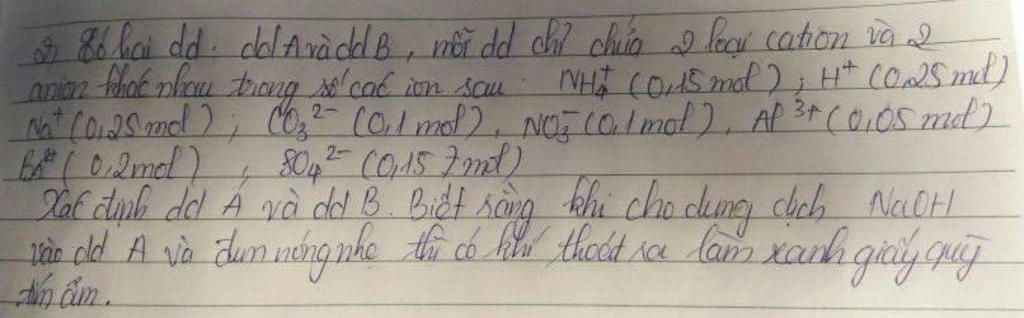 2) Có hai dd. ddA và ddB, mỗi dd chỉ chứa 2 loại cation và 2
anion khác nhau trong số các ion sau: NH₄⁺ (0,15 mol); H⁺ (0,25 mol)
Na⁺ (0,25 mol); CO₃²⁻ (0,1 mol), NO₃⁻ (0,1 mol), Al³⁺ (0,05 mol)
(0,2 mol), SO₄²⁻ (0,15 mol)
Xác định dd A và dd B. Biết rằng khi cho dung dịch NaOH
vào dd A và đun nóng nhẹ thì có khí thoát ra làm xanh giấy quỳ
tím ẩm.